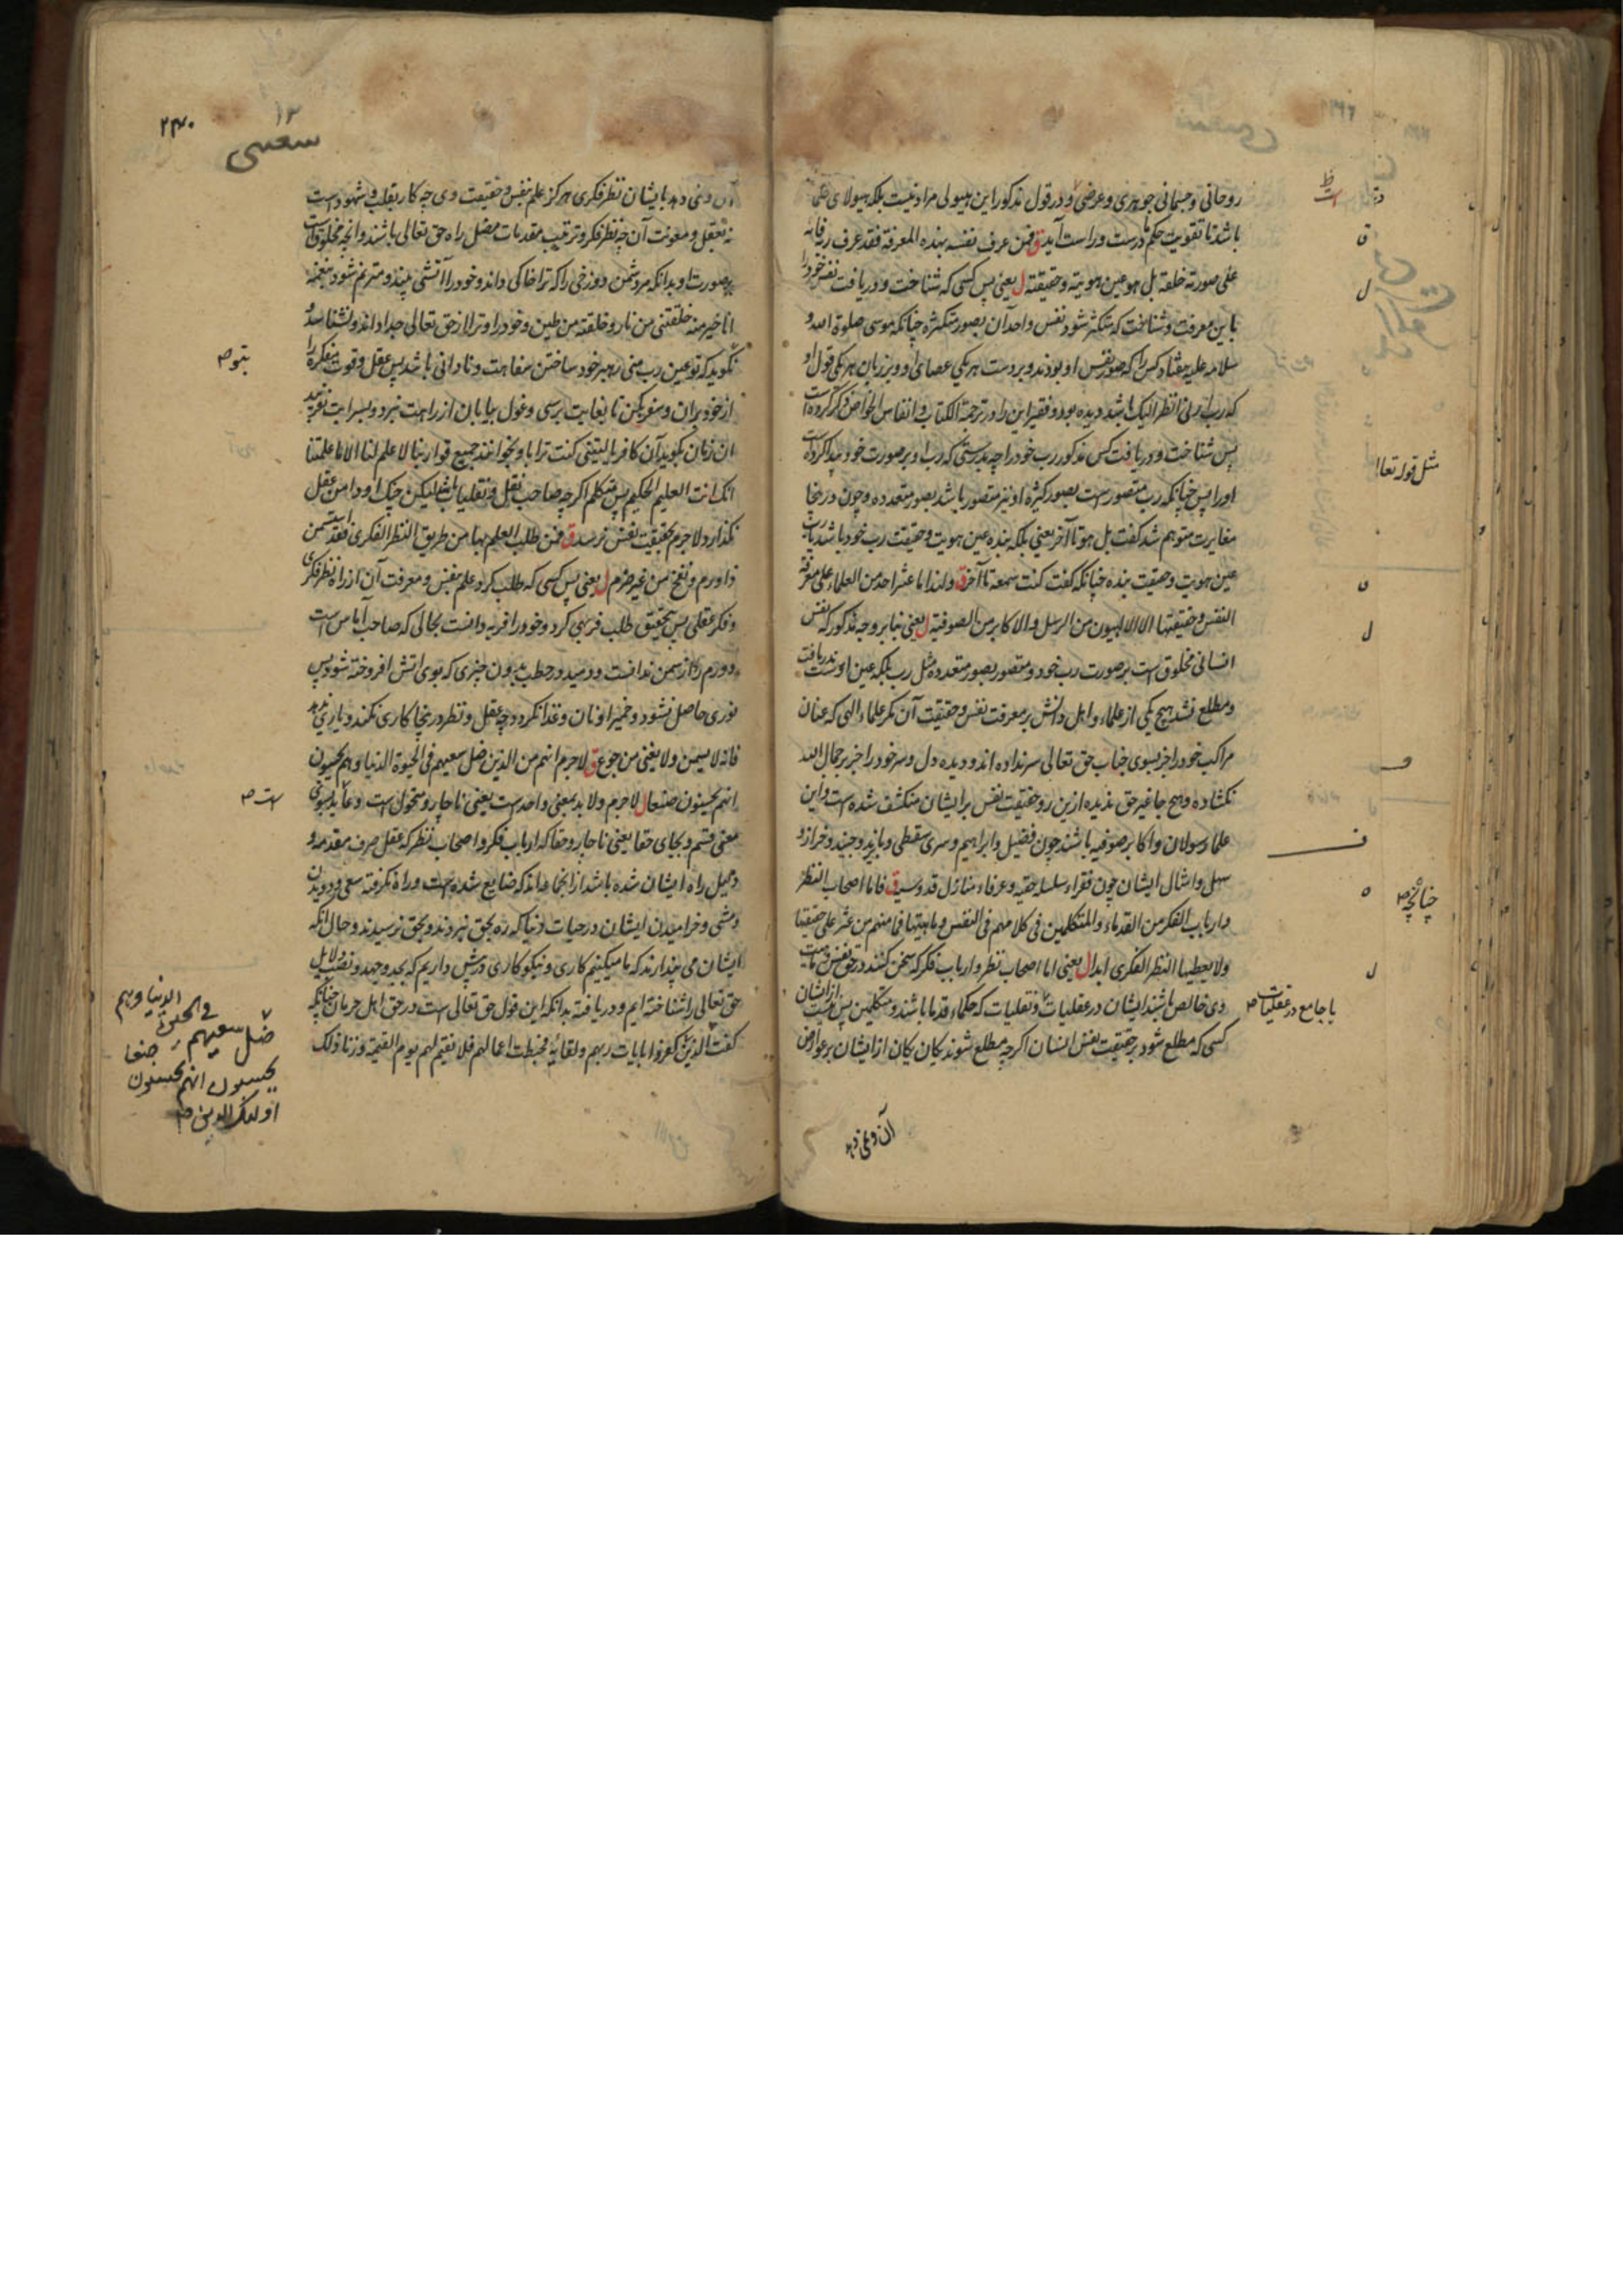 روحانی و جسمانی جوهری و عرضی و در قول مذکور این هیولی مراد نیست بلکه هیولای
باشد تا تقویت حکم درست و راست آید ق فمن عرف نفسه بهذه المعرفة فقد عرف ربه فانه
علی صورته خلقه بل هو عین هویته و حقیقته ل یعنی پس کسی که شناخت و دریافت نفس خود را
باین معرفت و شناخت که متکثر شود نفس واحد آن بصور متکثره چنانکه موسی صلوة الله و
سلامه علیه هفتاد کس را که صور نفس او بودند و بر دست هر یکی عصای او و بر زبان هر یکی قول او
که رب ارنی انظر الیک باشد دیده بود و فقیر این را در ترجمة الکتاب و انفاس الخواص ذکر کرده است
پس شناخت و دریافت کس مذکور رب خود را چه بدرستی که رب او بر صورت خود پیدا کرده است
او را پس چنانکه رب متصور است بصور کثیره او نیز متصور باشد بصور متعدده و چون در ینجا
مغایرت متوهم شد گفت بل هو تا آخر یعنی بلکه بنده عین هویت و حقیقت رب خود باشد یا رب
عین هویت و حقیقت بنده چنانکه گفت کنت سمعه تا آخر ق ولهذا ما عثر احد من العلماء علی معرفة
النفس و حقیقتها الا الالهیون من الرسل والاکابر من الصوفیة ل یعنی بنا بر وجه مذکور که نفس
انسانی مخلوق است بر صورت رب خود و متصور بصور متعدده مثل رب بلکه عین اوست در نیافت
و مطلع نشد هیچ یکی از علماء و اهل دانش بر معرفت نفس و حقیقت آن مگر علماء الهی که عنان
مراکب خود را جز بسوی جناب حق تعالی سر نداده اند و دیده دل و سر خود را جز بر جمال الله
نکشاده و هیچ جا غیر حق ندیده ازین رو حقیقت نفس بر ایشان منکشف شده است و این
علما رسولان و اکابر صوفیه باشند چون فضیل و ابراهیم و سری سقطی و بایزید و جنید و خراز و
سهل و امثال ایشان چون فقراء سلسله حقیه و عرفاء منازل قدوسیه ق فاما اصحاب النظر
و ارباب الفکر من القدماء والمتکلمین فی کلامهم فی النفس و ماهیتها فما منهم من عثر علی حقیقتها
ولا یعطیها النظر الفکری ابدا ل یعنی اما اصحاب نظر و ارباب فکر که سخن کنند در حق نفس و ماهیت
وی خالص باشند ایشان در عقلیات و نقلیات که حکماء قدما باشند و متکلمین پس نیست از ایشان
کسی که مطلع شود بر حقیقت نفس انسان اگرچه مطلع شوند یکان یکان از ایشان بر عوارض
مثل قوله تعالی
چنانچه ص
یا جامع در عقلیات ص
آن و نمی دهد
۱۳
آن و نمی دهد بایشان نظر فکری هرگز علم نفس و حقیقت وی چه کار بقلب و شهود است
نه بعقل و معونت آن چه نظر فکر و ترتیب مقدمات مضل راه حق تعالی باشند و آنچه مخلوق است
بر صورت او بدانکه مر دشمن دوزخی را که ترا خاکی داند و خود را آتشی بیند و مترنم شود بنغمه
انا خیر منه خلقتنی من نار و خلقته من طین و خود را و ترا از حق تعالی جدا داند و نشناسد و
نگوید که تو عین رب منی رهبر خود ساختن سفاهت و نادانی باشد پس عقل و قوت متفکره را
از خود بران و سفر بکن تا بغایت برسی و غول بیابان از راهت نبرد
ان زمان بگوید آن کافر یا لیتنی کنت ترابا و بخوانند جمیع قوا ربنا لا علم لنا الا ما علمتنا
انک انت العلیم الحکیم پس متکلم اگرچه صاحب نقل و نقلیات باشد لیکن چنگ او دامن عقل
نگذارد لاجرم بحقیقت نفس نرسد ق فمن طلب العلم بها من طریق النظر الفکری فقد استسمن
ذا ورم و نفخ من غیر ضرم ل یعنی پس کسی که طلب کرد علم نفس و معرفت آن از راه نظر فکری
و فکر عقلی پس بتحقیق طلب فربهی کرد و خود را فربه دانست بحالی که صاحب آماس است
و ورم را از سمن ندانست و دمید در حطب بدون چیزی که بوی آتش افروخته شود پس
نوری حاصل نشود و خمیر او نان و غذا نگردد چه عقل و نظر در ینجا کاری نکند و یاری ندهد
فانه لا یسمن ولا یغنی من جوع ق لاجرم انهم من الذین ضل سعیهم فی الحیوة الدنیا و هم یحسبون
انهم یحسنون صنعا ل لاجرم ولابد بمعنی واحد است یعنی ناچار و متحول است
معنی قسم و بجای حقا یعنی ناچار و حقا که ارباب فکر و اصحاب نظر که عقل صرف مقدمه و
دلیل راه ایشان شده باشد از آنها اند که ضایع شده است و راه نگرفته سعی و دویدن
و مشی و خرامیدن ایشان در حیات دنیا که ره بحق نبردند و بحق نرسیدند و حال آنکه
ایشان می پندارند که ما میکنیم کاری و نیکوکاری ورزش داریم که بجد و جهد و نصب دلایل
حق تعالی را شناخته ایم و دریافته بدانکه این قول حق تعالی است در حق اهل حرمان چنانکه
گفت الذین کفروا بایات ربهم و لقائه فحبطت اعمالهم فلا نقیم لهم یوم القیمة وزنا ذلک
است ص
ضل سعیهم فی الحیوة الدنیا و هم
یحسبون انهم یحسنون صنعا
اولئک الذین ص